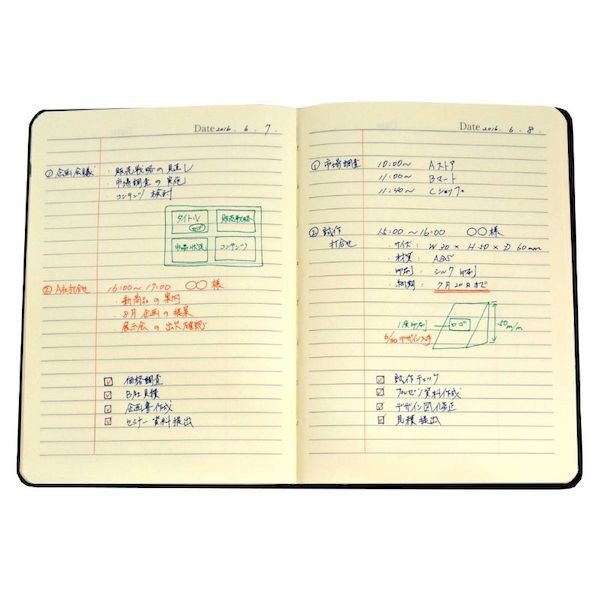 Date 2016. 6. 7.
① 企画会議 ・販売戦略の見直し
・市場調査の実施
・コンテンツ検討
タイトル 販売戦略
市場状況 コンテンツ
② A社打合せ 16:00〜17:00 ○○様
・新商品の案内
・8月企画の提案
・展示会の出欠確認
☑ 価格調査
☑ B社見積
☑ 企画書作成
☑ セミナー資料提出
Date 2016. 6. 8.
① 市場調査 10:00〜 Aストア
11:00〜 Bマート
11:40〜 Cショップ
② 試作打合せ 15:00〜16:00 ○○様
・サイズ: W50×H50×D60mm
・材質: ABS
・印刷: シルク印刷
・納期: 7月20日まで
1色印刷 ロゴ 50m/m
6/30 デザイン入手
☑ 試作チェック
☑ プレゼン資料作成
☑ デザイン図修正
☑ 見積提出